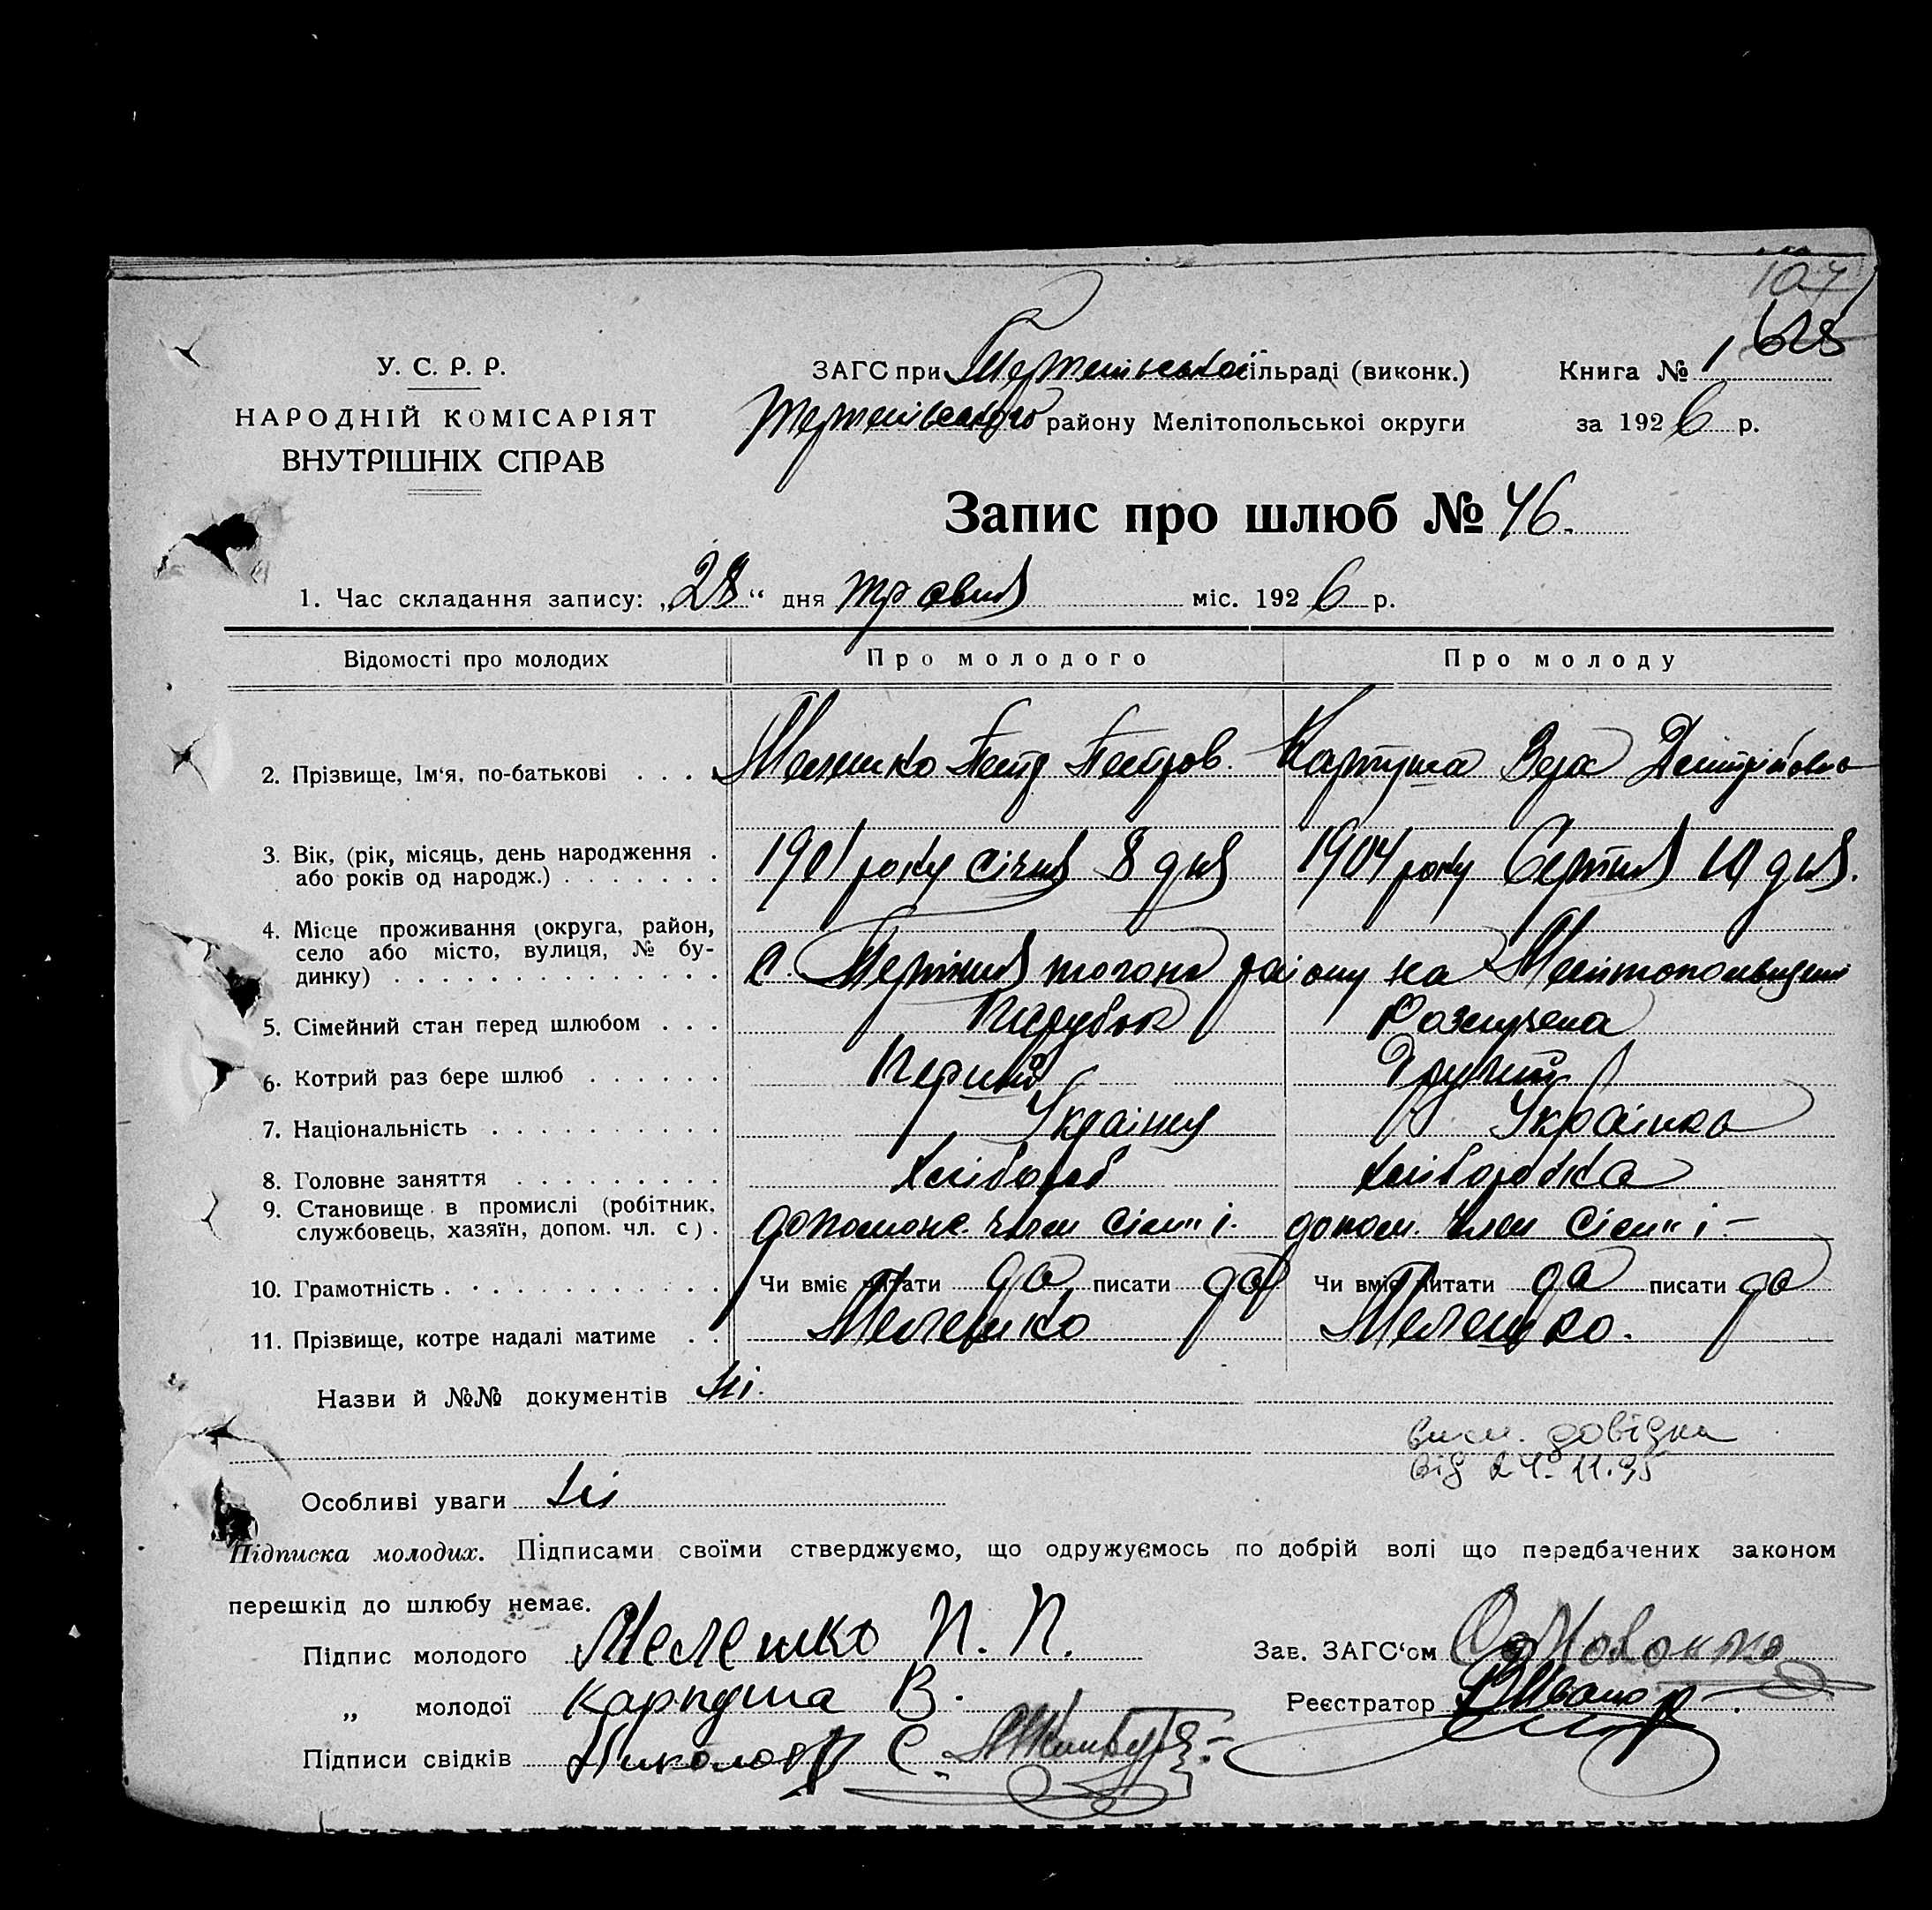 107
628
У. С. Р. Р.
НАРОДНІЙ КОМІСАРІЯТ
ВНУТРІШНІХ СПРАВ
ЗАГС при Терпеніівській сільраді (виконк.)
Терпеніівського району Мелітопольської округи
Книга № 1
за 1926 р.
Запис про шлюб № 46.
1. Час складання запису: „28“ дня травня міс. 1926 р.
Відомості про молодих Про молодого Про молоду
2. Прізвище, Ім'я, по-батькові . . . Мелешко Петр Петров. Карпуша Вера Дмитрійовна
3. Вік, (рік, місяць, день народження . 1901 року січня 8 дня 1904 року Серпня 10 дня.
або років од народж.) . . . . . . .
4. Місце проживання (округа, район,
село або місто, вулиця, № бу-
динку) . . . . . . . . . . . . . с. Терпіння тогож району на Мелітопольщині
5. Сімейний стан перед шлюбом . . . Парубок Розлучена
6. Котрий раз бере шлюб . . . . . . Перший Другий
7. Національність . . . . . . . . . . Українець Українка
8. Головне заняття . . . . . . . . . Хлібороб хліборобка
9. Становище в промислі (робітник,
службовець, хазяїн, допом. чл. с) . допоможн. член сієм"і. допом. член сієм"і –
10. Грамотність . . . . . . . . . . . . Чи вміє читати да писати да Чи вміє читати да писати да
11. Прізвище, котре надалі матиме . . Мелешко Мелешко.
Назви й №№ документів Ні.
висл. довідка
від 24. 11. 95
Особливі уваги Ні
Підписка молодих. Підписами своїми стверджуємо, що одружуємось по добрій волі що передбачених законом
перешкід до шлюбу немає.
Підпис молодого Мелешко П. П. Зав. ЗАГС'ом
„ молодої Карпуша В. Реєстратор
Підписи свідків С.